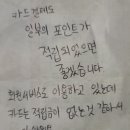 카드결제도
일부의 포인트가
적립되었으면
좋겠습니다
회원서비스로 이용하고 있는데
카드는 적립금이 없는것 같아서